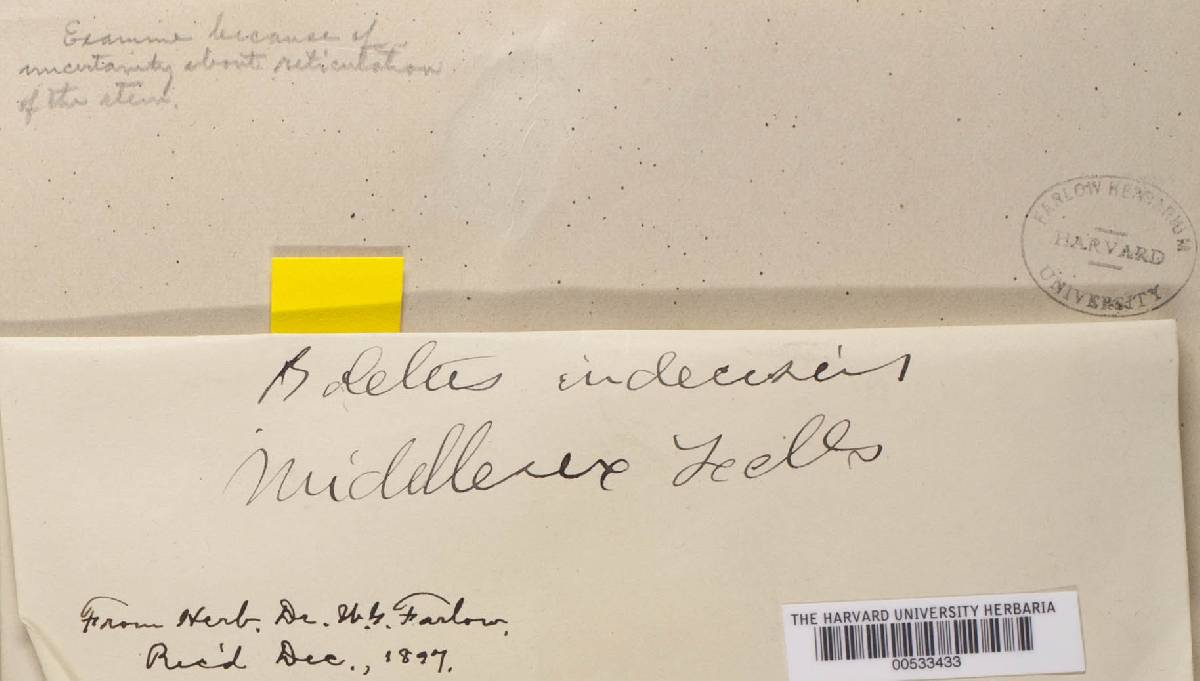 Examine because of
uncertainity about reticulation
of the stem.
FARLOW HERBARIUM
HARVARD
UNIVERSITY
Boletus indecisus
Middlesex Fells
From Herb. Dr. W. G. Farlow.
Rec'd Dec., 1897.
THE HARVARD UNIVERSITY HERBARIA
00533433